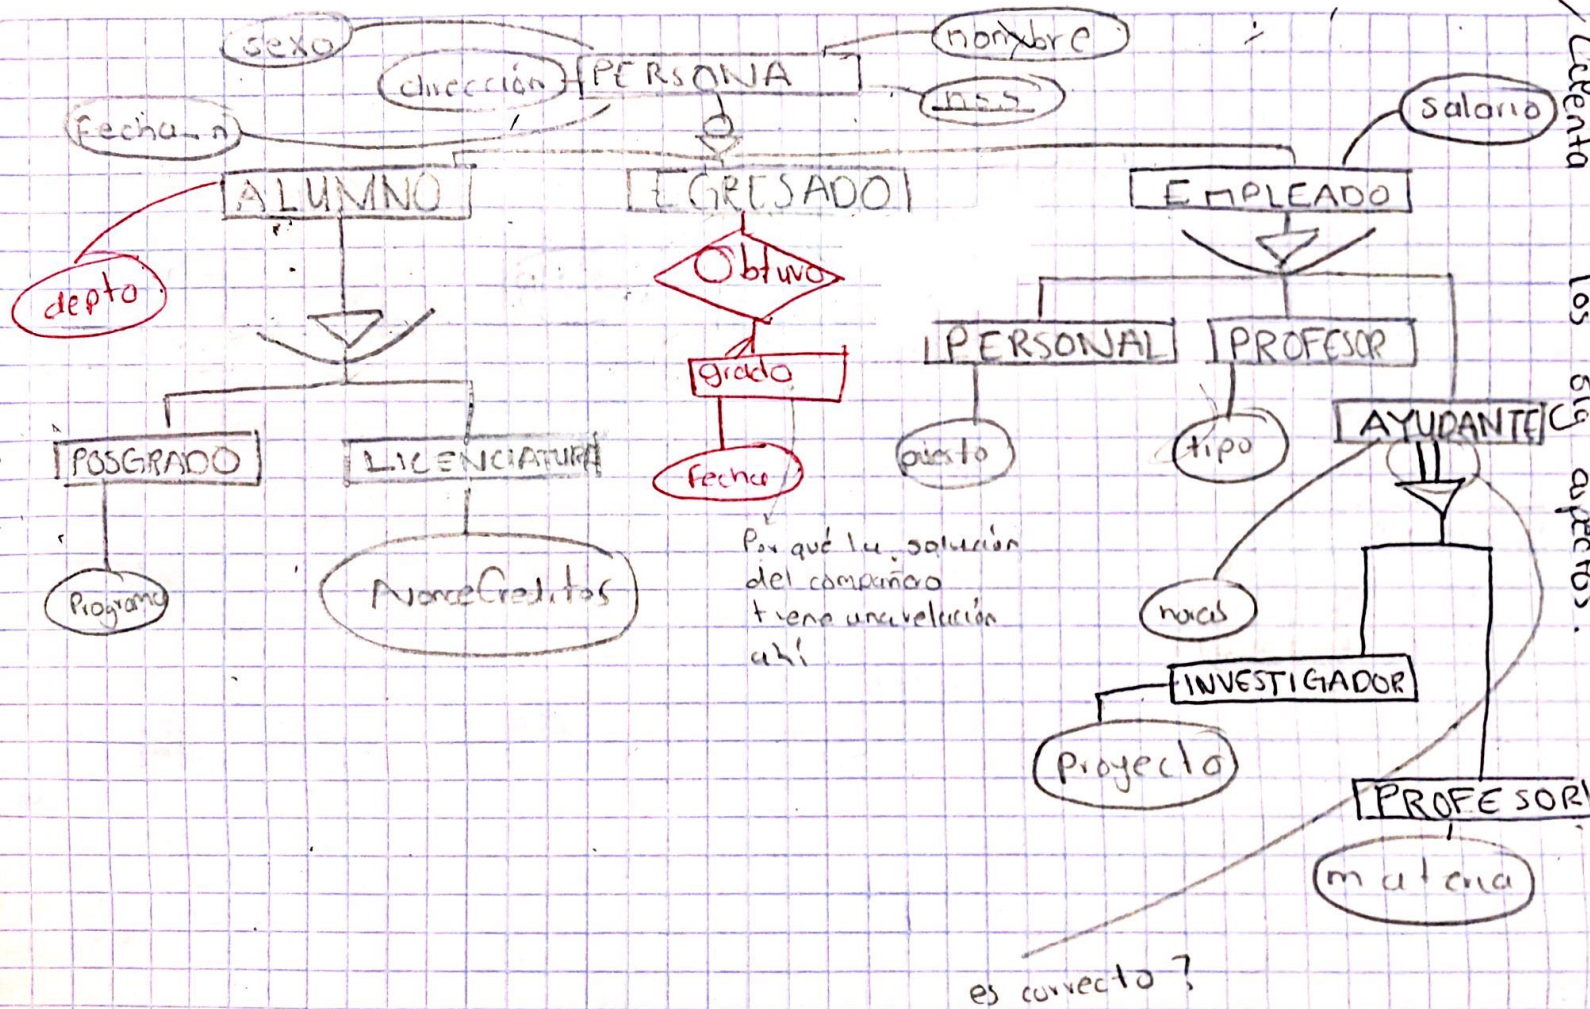 sexo
nombre
dirección
PERSONA
nss
Fecha_n
salario
ALUMNO
EGRESADO
EMPLEADO
depto
Obtuvo
PERSONAL
PROFESOR
grado
AYUDANTE
POSGRADO
LICENCIATURA
Fecha
puesto
tipo
Programa
AvanceCreditos
Por qué la solución
del compañero
tiene una relación
ahí
horas
INVESTIGADOR
Proyecto
PROFESOR
materia
es correcto?
Cuenta los sig aspectos.